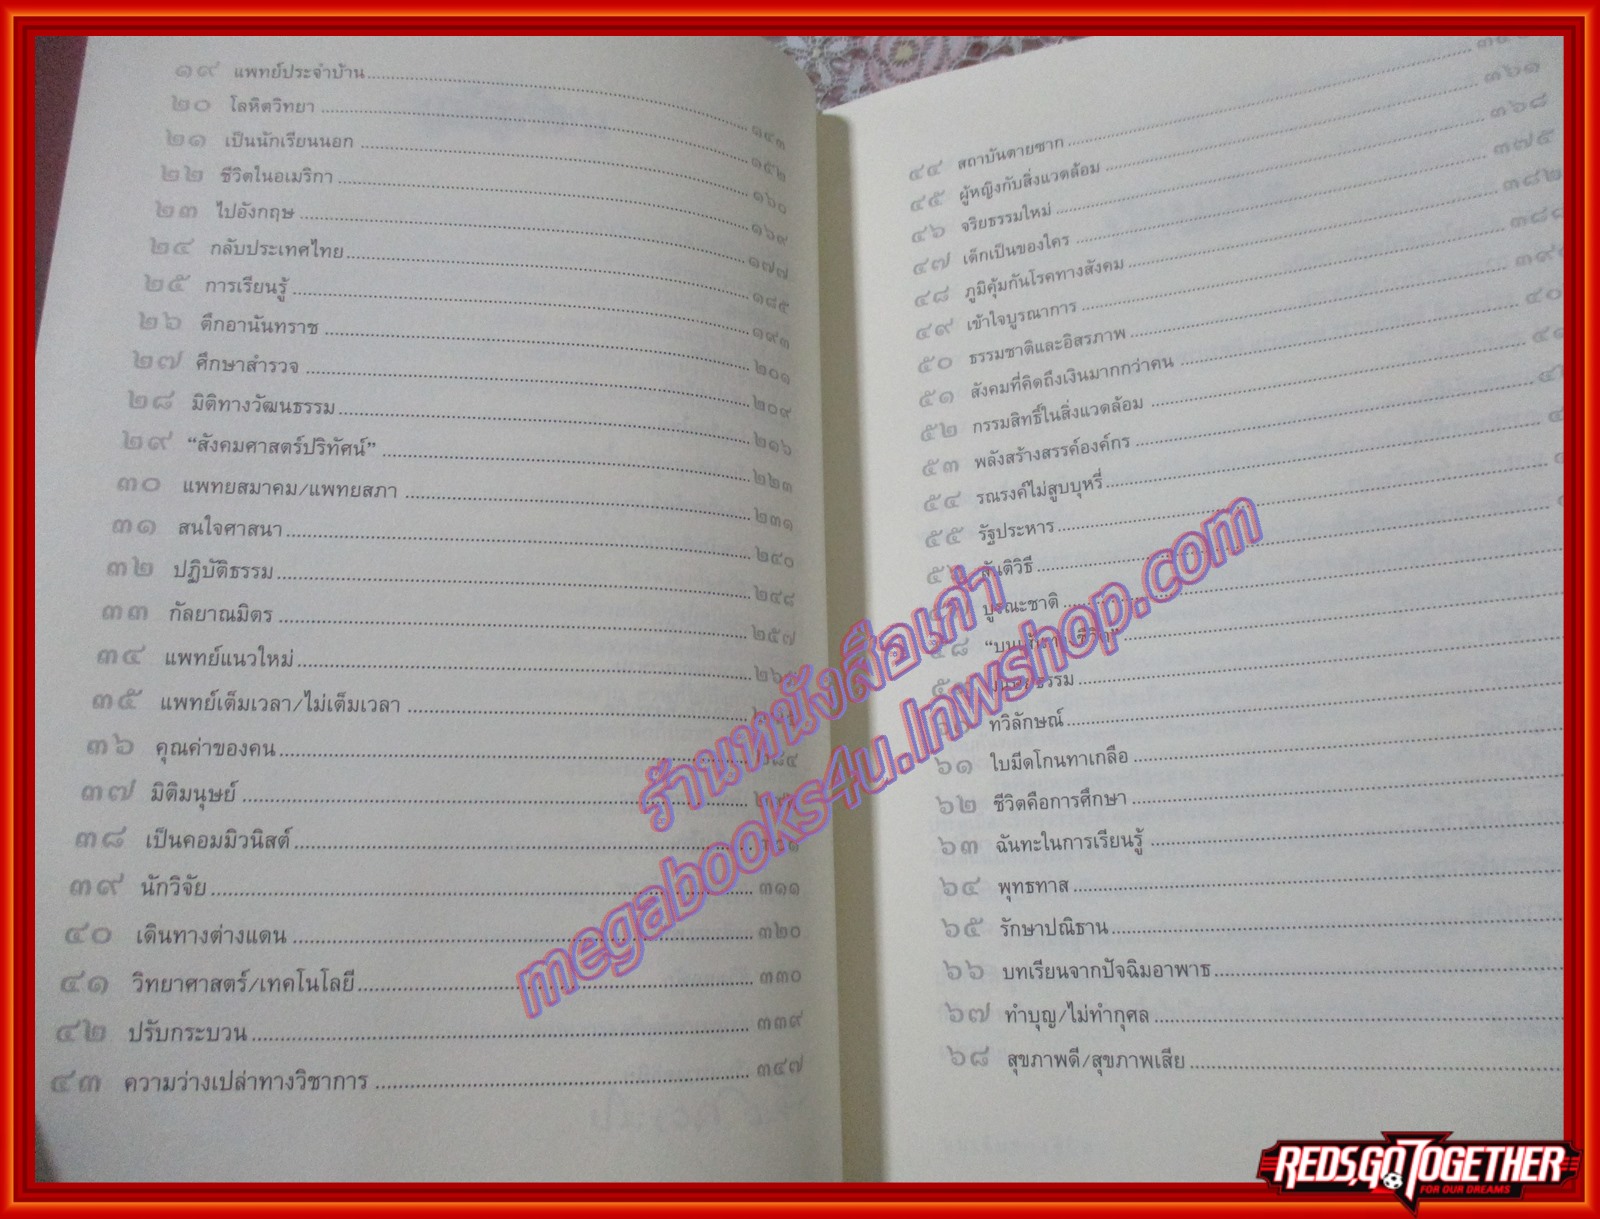 ๑๙ แพทย์ประจำบ้าน ๑๔๓
๒๐ โลหิตวิทยา ๑๕๒
๒๑ เป็นนักเรียนนอก ๑๖๐
๒๒ ชีวิตในอเมริกา ๑๖๙
๒๓ ไปอังกฤษ ๑๗๗
๒๔ กลับประเทศไทย ๑๘๕
๒๕ การเรียนรู้ ๑๙๓
๒๖ ตึกอานันทราช ๒๐๑
๒๗ ศึกษาสำรวจ ๒๐๙
๒๘ มิติทางวัฒนธรรม ๒๑๖
๒๙ “สังคมศาสตร์ปริทัศน์” ๒๒๓
๓๐ แพทยสมาคม/แพทยสภา ๒๓๑
๓๑ สนใจศาสนา ๒๔๐
๓๒ ปฏิบัติธรรม ๒๔๘
๓๓ กัลยาณมิตร ๒๕๗
๓๔ แพทย์แนวใหม่
๓๕ แพทย์เต็มเวลา/ไม่เต็มเวลา
๓๖ คุณค่าของคน
๓๗ มิติมนุษย์
๓๘ เป็นคอมมิวนิสต์
๓๙ นักวิจัย ๓๑๑
๔๐ เดินทางต่างแดน ๓๒๐
๔๑ วิทยาศาสตร์/เทคโนโลยี ๓๓๐
๔๒ ปรับกระบวน ๓๓๙
๔๓ ความว่างเปล่าทางวิชาการ ๓๔๗
๔๔ สถาบันตายซาก
๔๕ ผู้หญิงกับสิ่งแวดล้อม ๓๖๑
๔๖ จริยธรรมใหม่ ๓๖๘
๔๗ เด็กเป็นของใคร ๓๗๕
๔๘ ภูมิคุ้มกันโรคทางสังคม ๓๘๒
๔๙ เข้าใจบูรณาการ ๓๘๘
๕๐ ธรรมชาติและอิสรภาพ
๕๑ สังคมที่คิดถึงเงินมากกว่าคน
๕๒ กรรมสิทธิ์ในสิ่งแวดล้อม
๕๓ พลังสร้างสรรค์องค์กร
๕๔ รณรงค์ไม่สูบบุหรี่
๕๕ รัฐประหาร
สันติวิธี
บูรณะชาติ
๕๘
ทวิลักษณ์
๖๑ ใบมีดโกนทาเกลือ
๖๒ ชีวิตคือการศึกษา
๖๓ ฉันทะในการเรียนรู้
๖๔ พุทธทาส
๖๕ รักษาปณิธาน
๖๖ บทเรียนจากปัจฉิมอาพาธ
๖๗ ทำบุญ/ไม่ทำกุศล
๖๘ สุขภาพดี/สุขภาพเสีย
ร้านหนังสือเก่า
megabooks4u.lnwshop.com
REDS,GO TOGETHER
FOR OUR DREAMS